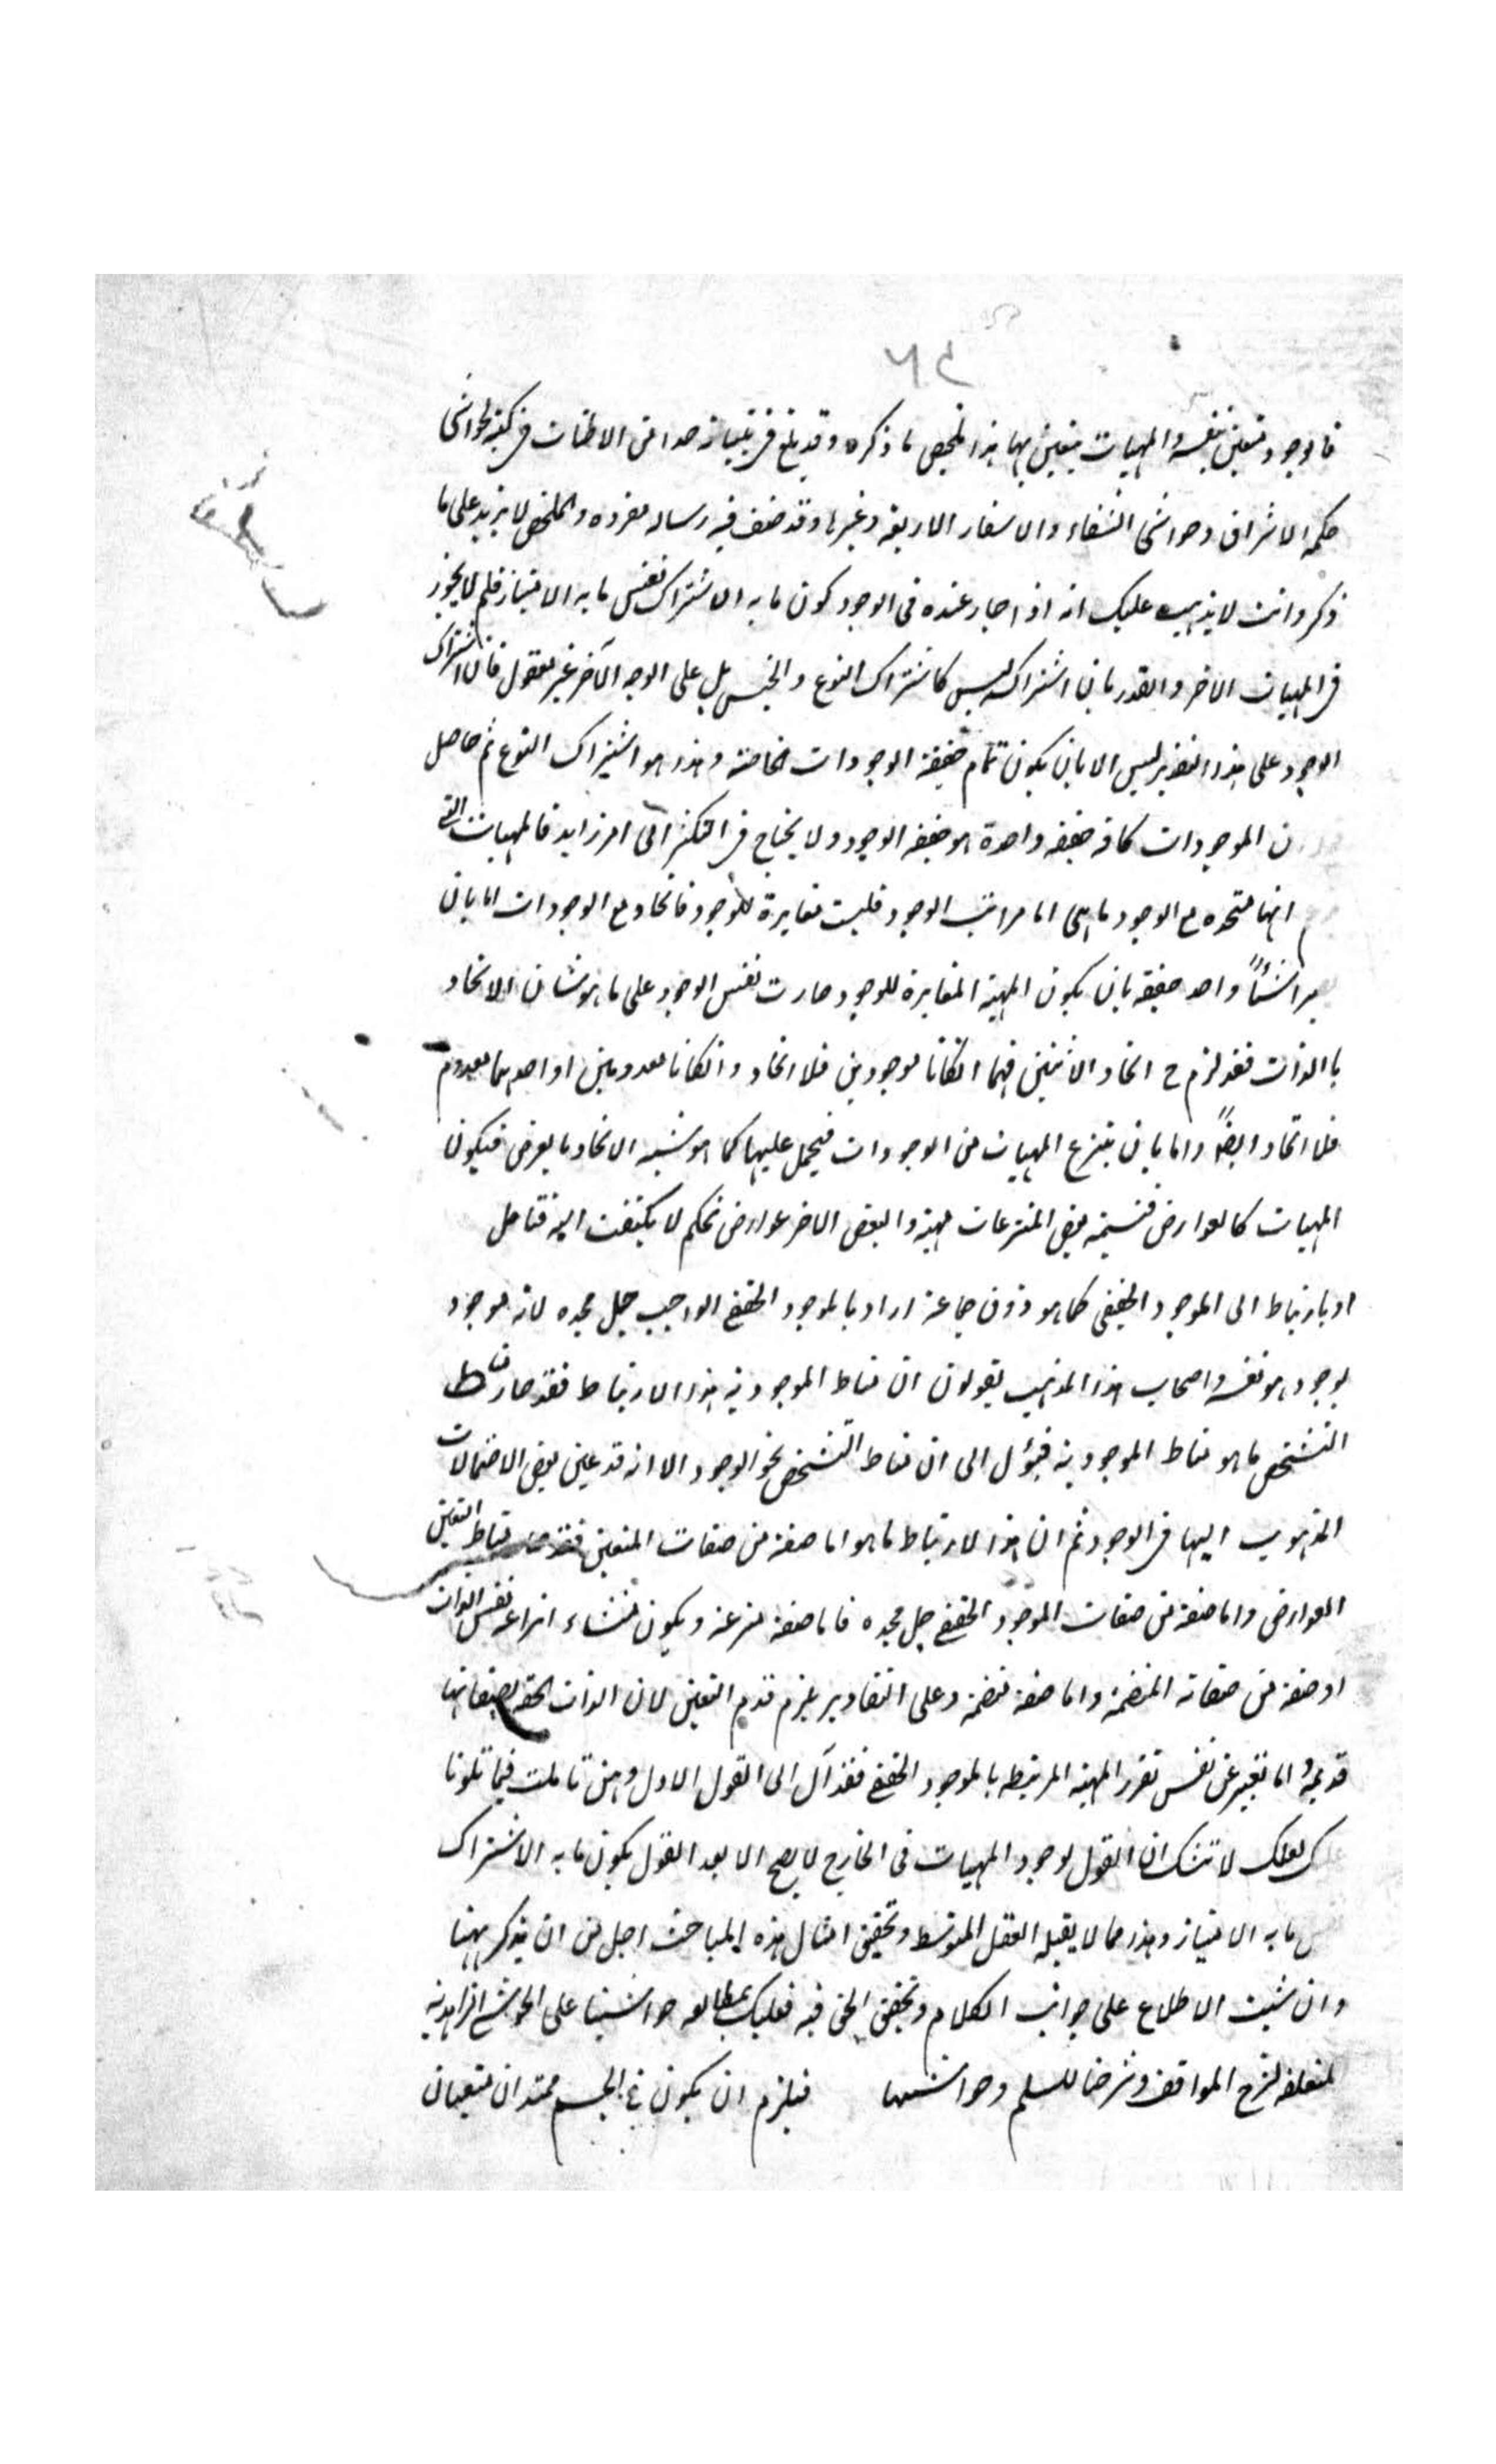 ٦٤
فالوجود متعين بنفسه والمهيات متعين بها هذا تلخيص ما ذكره وقد بلغ في تبيانه حدا من الاطناب في كتبه كحواشى
حكمه الاشراق وحواشى الشفاء والاسفار الاربعة وغيرها وقد صنف فيه رساله مفرده والملخص لا يزيد على ما
ذكر وانت لا يذهب عليك انه اذا جاز عنده فى الوجود كون ما به الاشتراك نفس ما به الامتياز فلم لا يجوز
فى المهيات الاخر والقدر بان اشتراكه ليس كاشتراك النوع والجنس بل على الوجه الآخر غير معقول فان اشتراك
الوجود على هذا التقدير ليس الا بان يكون تمام حقيقة الوجودات الخاصة وهذا هو اشتراك النوع ثم حاصل
ان الموجودات كافه حقيقه واحدة هو حقيقه الوجود ولا يحتاج فى التكثر الى امر زايد فالمهيات التى
انها متحده مع الوجود ماهى اما مراتب الوجود فليست مغايرة للوجود فاتحاد مع الوجودات اما بان
يصيرا شيئاً واحد حقيقه بان يكون المهية المغايرة للوجود صارت نفس الوجود على ما هو شان الاتحاد
باالذات فقد لزم ح اتحاد الاثنين فهما انكانا موجودين فلا اتحاد وانكانا معدومين او احدهما معدوم
فلا اتحاد ايضاً واما بان ينتزع المهيات من الوجودات فيحمل عليها كما هو شبه الاتحاد بالعرض فيكون
المهيات كالعوارض فتسميه بعض المنتزعات مهية والبعض الاخر عوارض تحكم لا يلتفت اليه فتامل
او بارتباط الى الموجود الحقيقى كما هو ذوق جماعة اراد بالموجود الحقيقى الواجب جل مجده لانه موجود
بوجود هو نفسه واصحاب هذا المذهب يقولون ان مناط الموجودية هذا الارتباط فقد صار مناط
التشخص ما هو مناط الموجودية فيؤل الى ان مناط التشخص نحو الوجود الا انه قد عين بعض الاحتمالات
المذهوب اليها فى الوجود ثم ان هذا الارتباط ما هو اما صفة من صفات المتعين فقد صار مناط التعين
العوارض واما صفة من صفات الموجود الحقيقى جل مجده فاما صفة منتزعة ويكون منشاء انتزاعه نفس الذات
او صفة من صفاته المنضمة واما صفة منضمة وعلى التقادير يلزم قدم التعين لان الذات الحقه بصفاتها
قديمة واما تعبير عن نفس تقرر المهية المرتبطه بالموجود الحقيقى فقد آل الى القول الاول وان تاملت فيما تلونا
عليك لعلك لا تشك ان القول بوجود المهيات فى الخارج لا يصح الا بعد القول بكون ما به الاشتراك
نفس ما به الامتياز وهذا مما لا يقبله العقل المتوسط وتحقيق امثال هذه المباحث اجل من ان يذكر ههنا
وان شيت الاطلاع على جوانب الكلام وتحقيق الحق فيه فعليك بمطالعه حواشينا على الحواشى الزاهدية
المتعلقه بشرح المواقف وشرحنا للسلم وحواشيها فيلزم ان يكون فى الجسم ممتدان متعينان